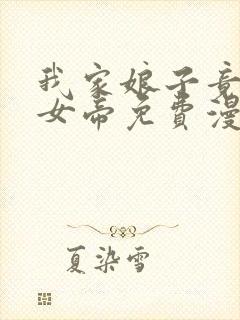 我家娘子竟
女帝免費漫
夏染雪